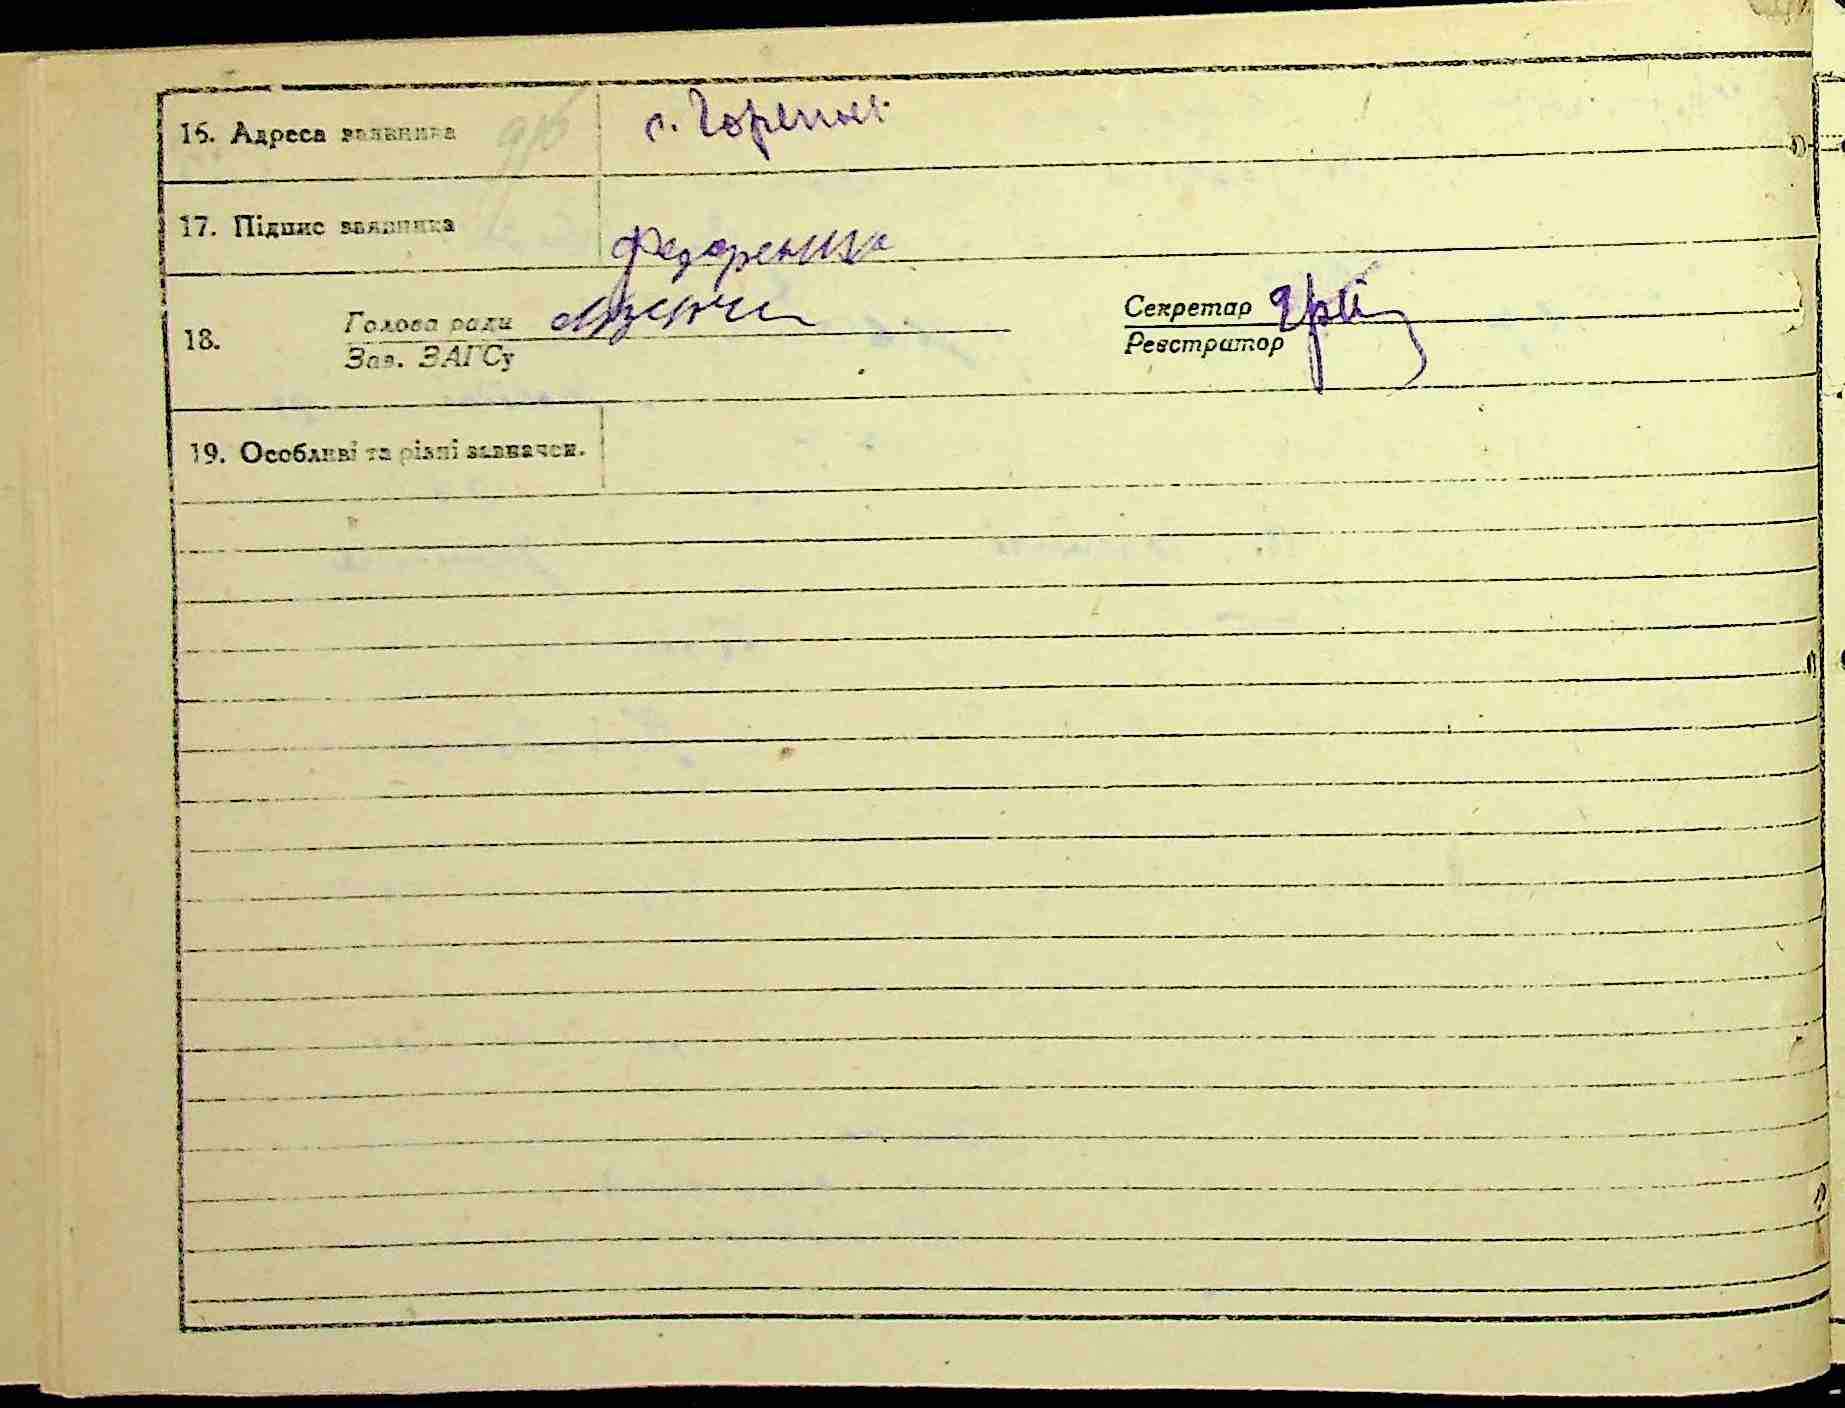 16. Адреса заявника с. Горенка
17. Підпис заявника Федоренко
18. Голова ради
Зав. ЗАГСу
Секретар
Реєстратор
19. Особливі та різні зазначен.